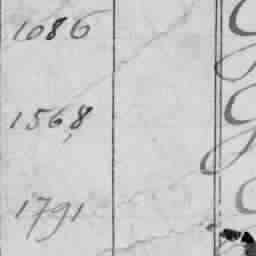 1086
1568
1791